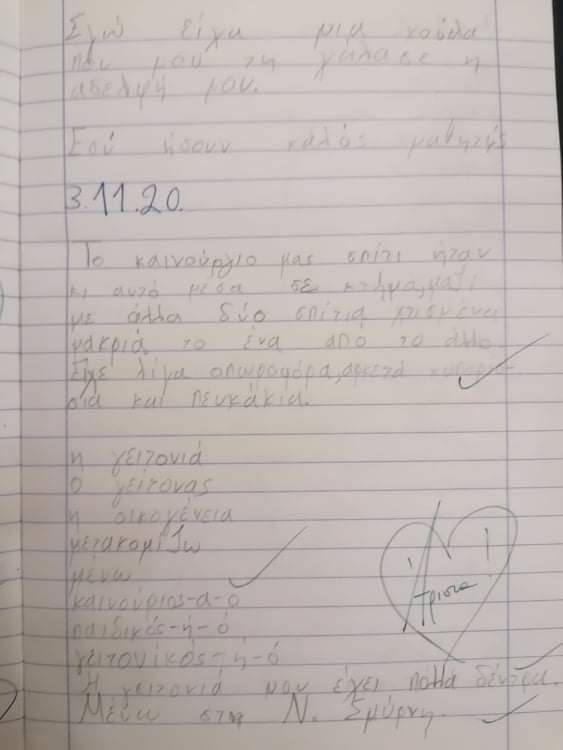 Εγώ είχα μια κούκλα
που μου τη χάλασε η
αδελφή μου.
Εσύ ήσουν καλός μαθητής
3.11.20.
Το καινούργιο μας σπίτι ήταν
κι αυτό μέσα σε κτήμα, μαζί
με άλλα δύο σπίτια χτισμένα
μακριά το ένα από το άλλο.
Είχε λίγα οπωροφόρα, αρκετά κυπαρίσ-
σια και πευκάκια.
η γειτονιά
ο γείτονας
η οικογένεια
μετακομίζω
μένω
καινούριος-α-ο
παιδικός-ή-ό
γειτονικός-ή-ό
Άριστα
Η γειτονιά μου έχει πολλά δέντρα.
Μένω στη Ν. Σμύρνη.